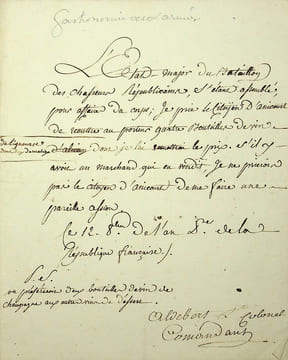 Gastronomie aux armées
L'Etat-major du Bataillon
des chasseurs Républicains, s'étant assemblé,
pour affaire du corps; Je prie le Citoyen d'anicourt
de remettre au porteur quatre Bouteilles de vin
donc je lui le prix. s'il y
avoit un marchand qui en vendit, Je ne prierois
pas le citoyen d'anicourt de me faire une
pareille
ce 12. 8bre de l'an 2e de la
République française./.
P.S.
on préfèreroit deux bouteilles de vin de
champagne aux autre vin de désere.
Colonel
Comandant